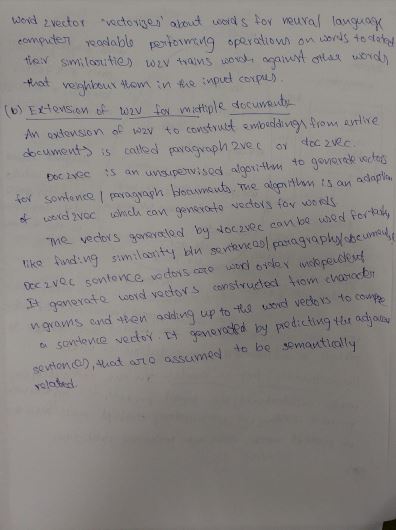 word 2vector "vectorizes" about words for neural language
computer readable performing operations on words to detect
their similarities w2v trains words against other words
that neighbour them in the input corpus.
(b) Extension of w2v for multiple documents
An extension of w2v to construct embeddings from entire
documents is called paragraph2vec or doc2vec.
Doc2vec is an unsupervised algorithm to generate vectors
for sentence / paragraph / documents. The algorithm is an adaption
of word2vec which can generate vectors for words.
The vectors generated by doc2vec can be used for tasks
like finding similarity b/n sentences/paragraphs/documents
Doc2vec sentence vectors are word order independent
It generate word vectors constructed from character
n grams and then adding up to the word vectors to compose
a sentence vector. It generated by predicting the adjacent
sentences, that are assumed to be semantically
related.